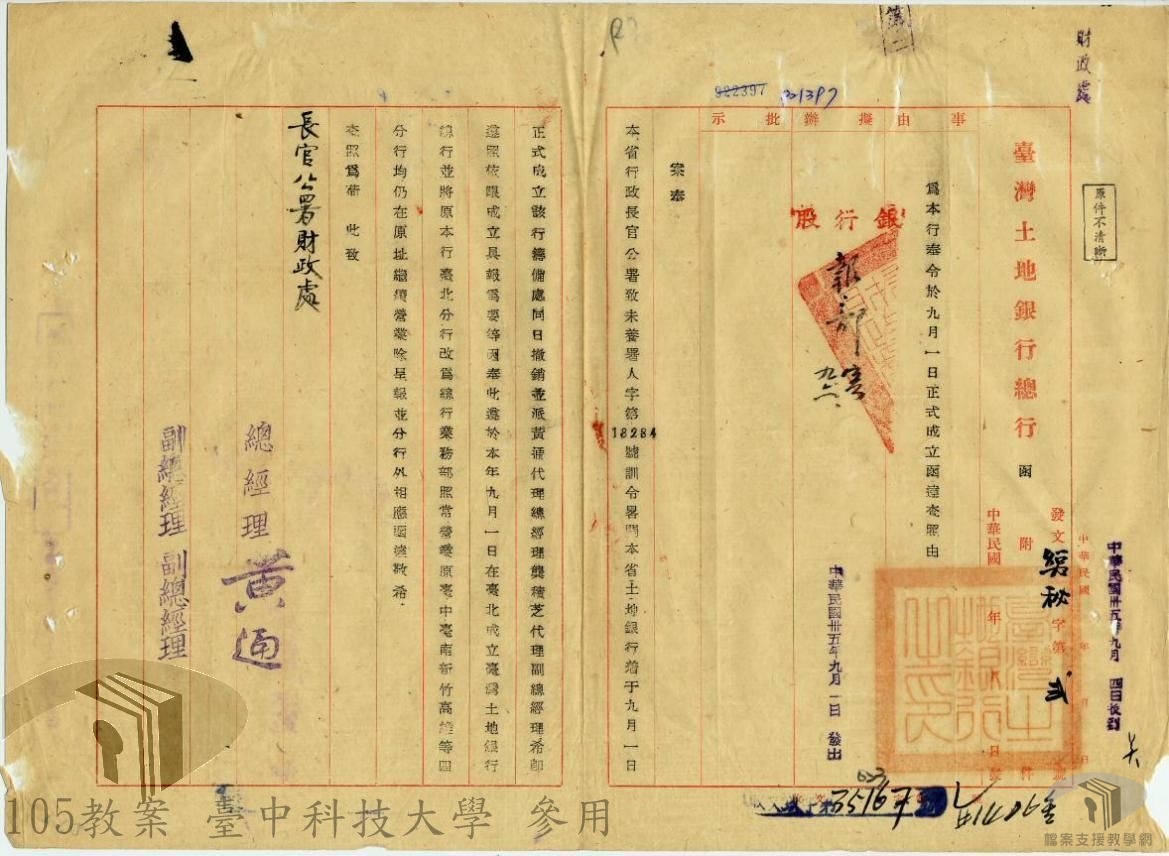 財政處
原件不清晰
中華民國卅五年九月四日收到
中華民國 年 月 日
臺灣土地銀行總行 函
發文 總秘 字第 弍 號
附 件
中華民國 年 月 日發
事由擬辦批示
922397
901397
為本行奉令於九月一日正式成立函達查照由
中華民國卅五年九月一日 發出
銀行股
報部案
九六
案奉
本省行政長官公署致未養署人字第18284號訓令畧開本省土地銀行着于九月一日
正式成立該行籌備處同日撤銷並派黃通代理總經理龔積芝代理副總經理希即
遵照依限成立具報為要等因奉此遵於本年九月一日在臺北成立臺灣土地銀行
總行並將原本行臺北分行改為總行業務部照常營業原臺中臺南新竹高雄等四
分行均仍在原址繼續營業除呈報並分行外相應函達敬希
查照為荷 此致
長官公署財政處
總經理 黃通
副總經理 副總經理
105教案 臺中科技大學 參用
檔案支援教學網